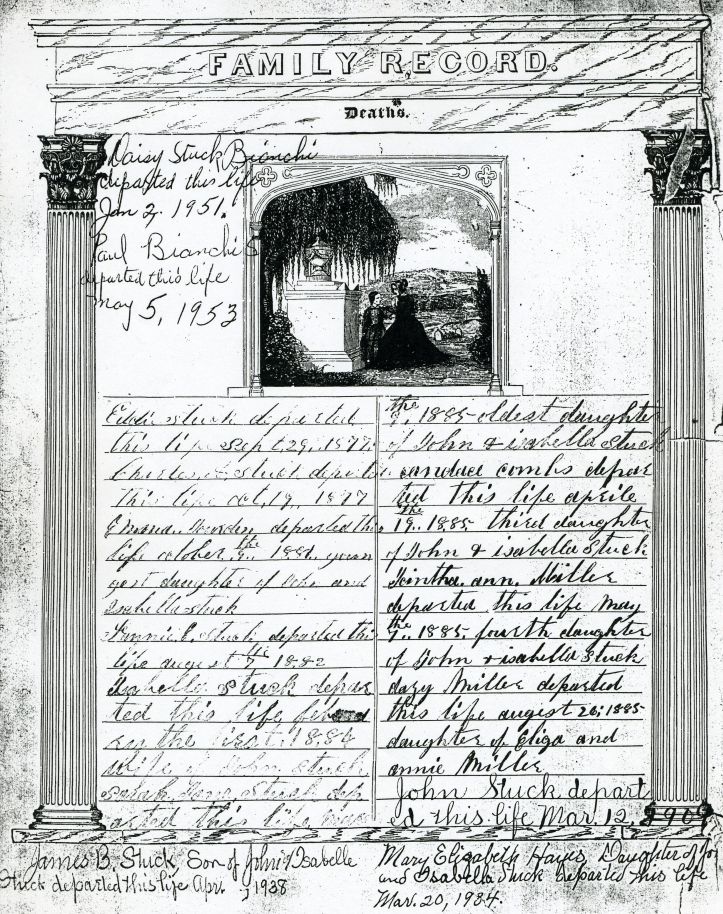 FAMILY RECORD.
Deaths.
Daisy Stuck Bianchi
departed this life
Jan 2, 1951.
Paul Bianchi
departed this life
May 5, 1953
Eddie stuck departed
this life Sept 29, 1877.
Charles stuck departed
this life oct, 19, 1877
Emma departed this
life october the 9 1881, youn
gest daughter of John and
Isabella stuck
Fannie E. Stuck departed this
life august the 7 1882
Isabella stuck depar
ted this life
the 1886
wife of John stuck
Sarah stuck dep
arted this life
the 1885 oldest daughter
of John & isabella stuck
candace combs depar
ted this life aprile
the 19, 1885 third daughter
of John & isabella stuck
ann. Miller
departed this life may
the 7, 1885, fourth daughter
of John & isabella stuck
dazy Miller departed
this life august 26, 1885
daughter of Eliga and
annie Miller
John Stuck depart
ed this life Mar. 12, 1909
James B. Stuck Son of John & Isabelle
Stuck departed this life Apr. , 1938
Mary Elizabeth Hayes, Daughter of
and Isabella Stuck departed this life
Mar. 20, 1934.